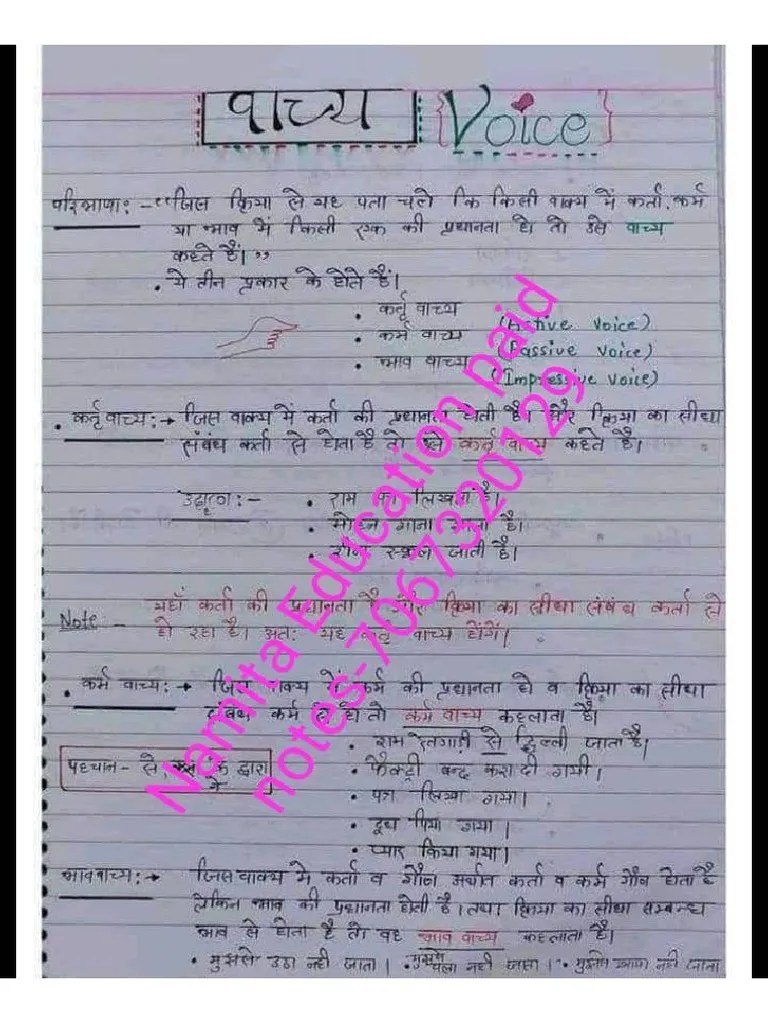 वाच्य Voice
परिभाषा :- “जिस क्रिया से यह पता चले कि किसी वाक्य में कर्ता, कर्म
या भाव में किसी एक की प्रधानता हो तो उसे वाच्य
कहते हैं।”
• ये तीन प्रकार के होते हैं।
• कर्तृ वाच्य (Active Voice)
• कर्म वाच्य (Passive Voice)
• भाव वाच्य (Impressive Voice)
• कर्तृवाच्य :→ जिस वाक्य में कर्ता की प्रधानता होती है। और क्रिया का सीधा
संबंध कर्ता से होता है तो उसे कर्तृ वाच्य कहते है।
उदाहरण :- • राम पत्र लिखता है।
• मोहन गाना गाता है।
• स्कूल जाती है।
Note :- यहाँ कर्ता की प्रधानता है और क्रिया का सीधा संबंध कर्ता से
हो रहा है। अतः यह कर्तृ वाच्य होंगें।
• कर्म वाच्य :→ जिस वाक्य में कर्म की प्रधानता हो व क्रिया का सीधा
संबंध कर्म से हो तो कर्म वाच्य कहलाता है।
• राम रेलगाड़ी से दिल्ली जाता है।
पहचान - से, के द्वारा
ने
• फैक्ट्री बन्द करा दी गयी।
• पत्र लिखा गया।
• दूध पिया गया।
• प्यार किया गया।
भाववाच्य :→ जिस वाक्य मे कर्ता व गौण अर्थात कर्ता व कर्म गौण होता है
लेकिन भाव की प्रधानता होती है। तथा क्रिया का सीधा सम्बन्ध
भाव से होता है तो वह भाव वाच्य कहलाता है।
• मुझसे उठा नही जाता। • मुझसे चला नही जाता। • मुझसे नही जाता
Namita Education paid
notes-7067320129